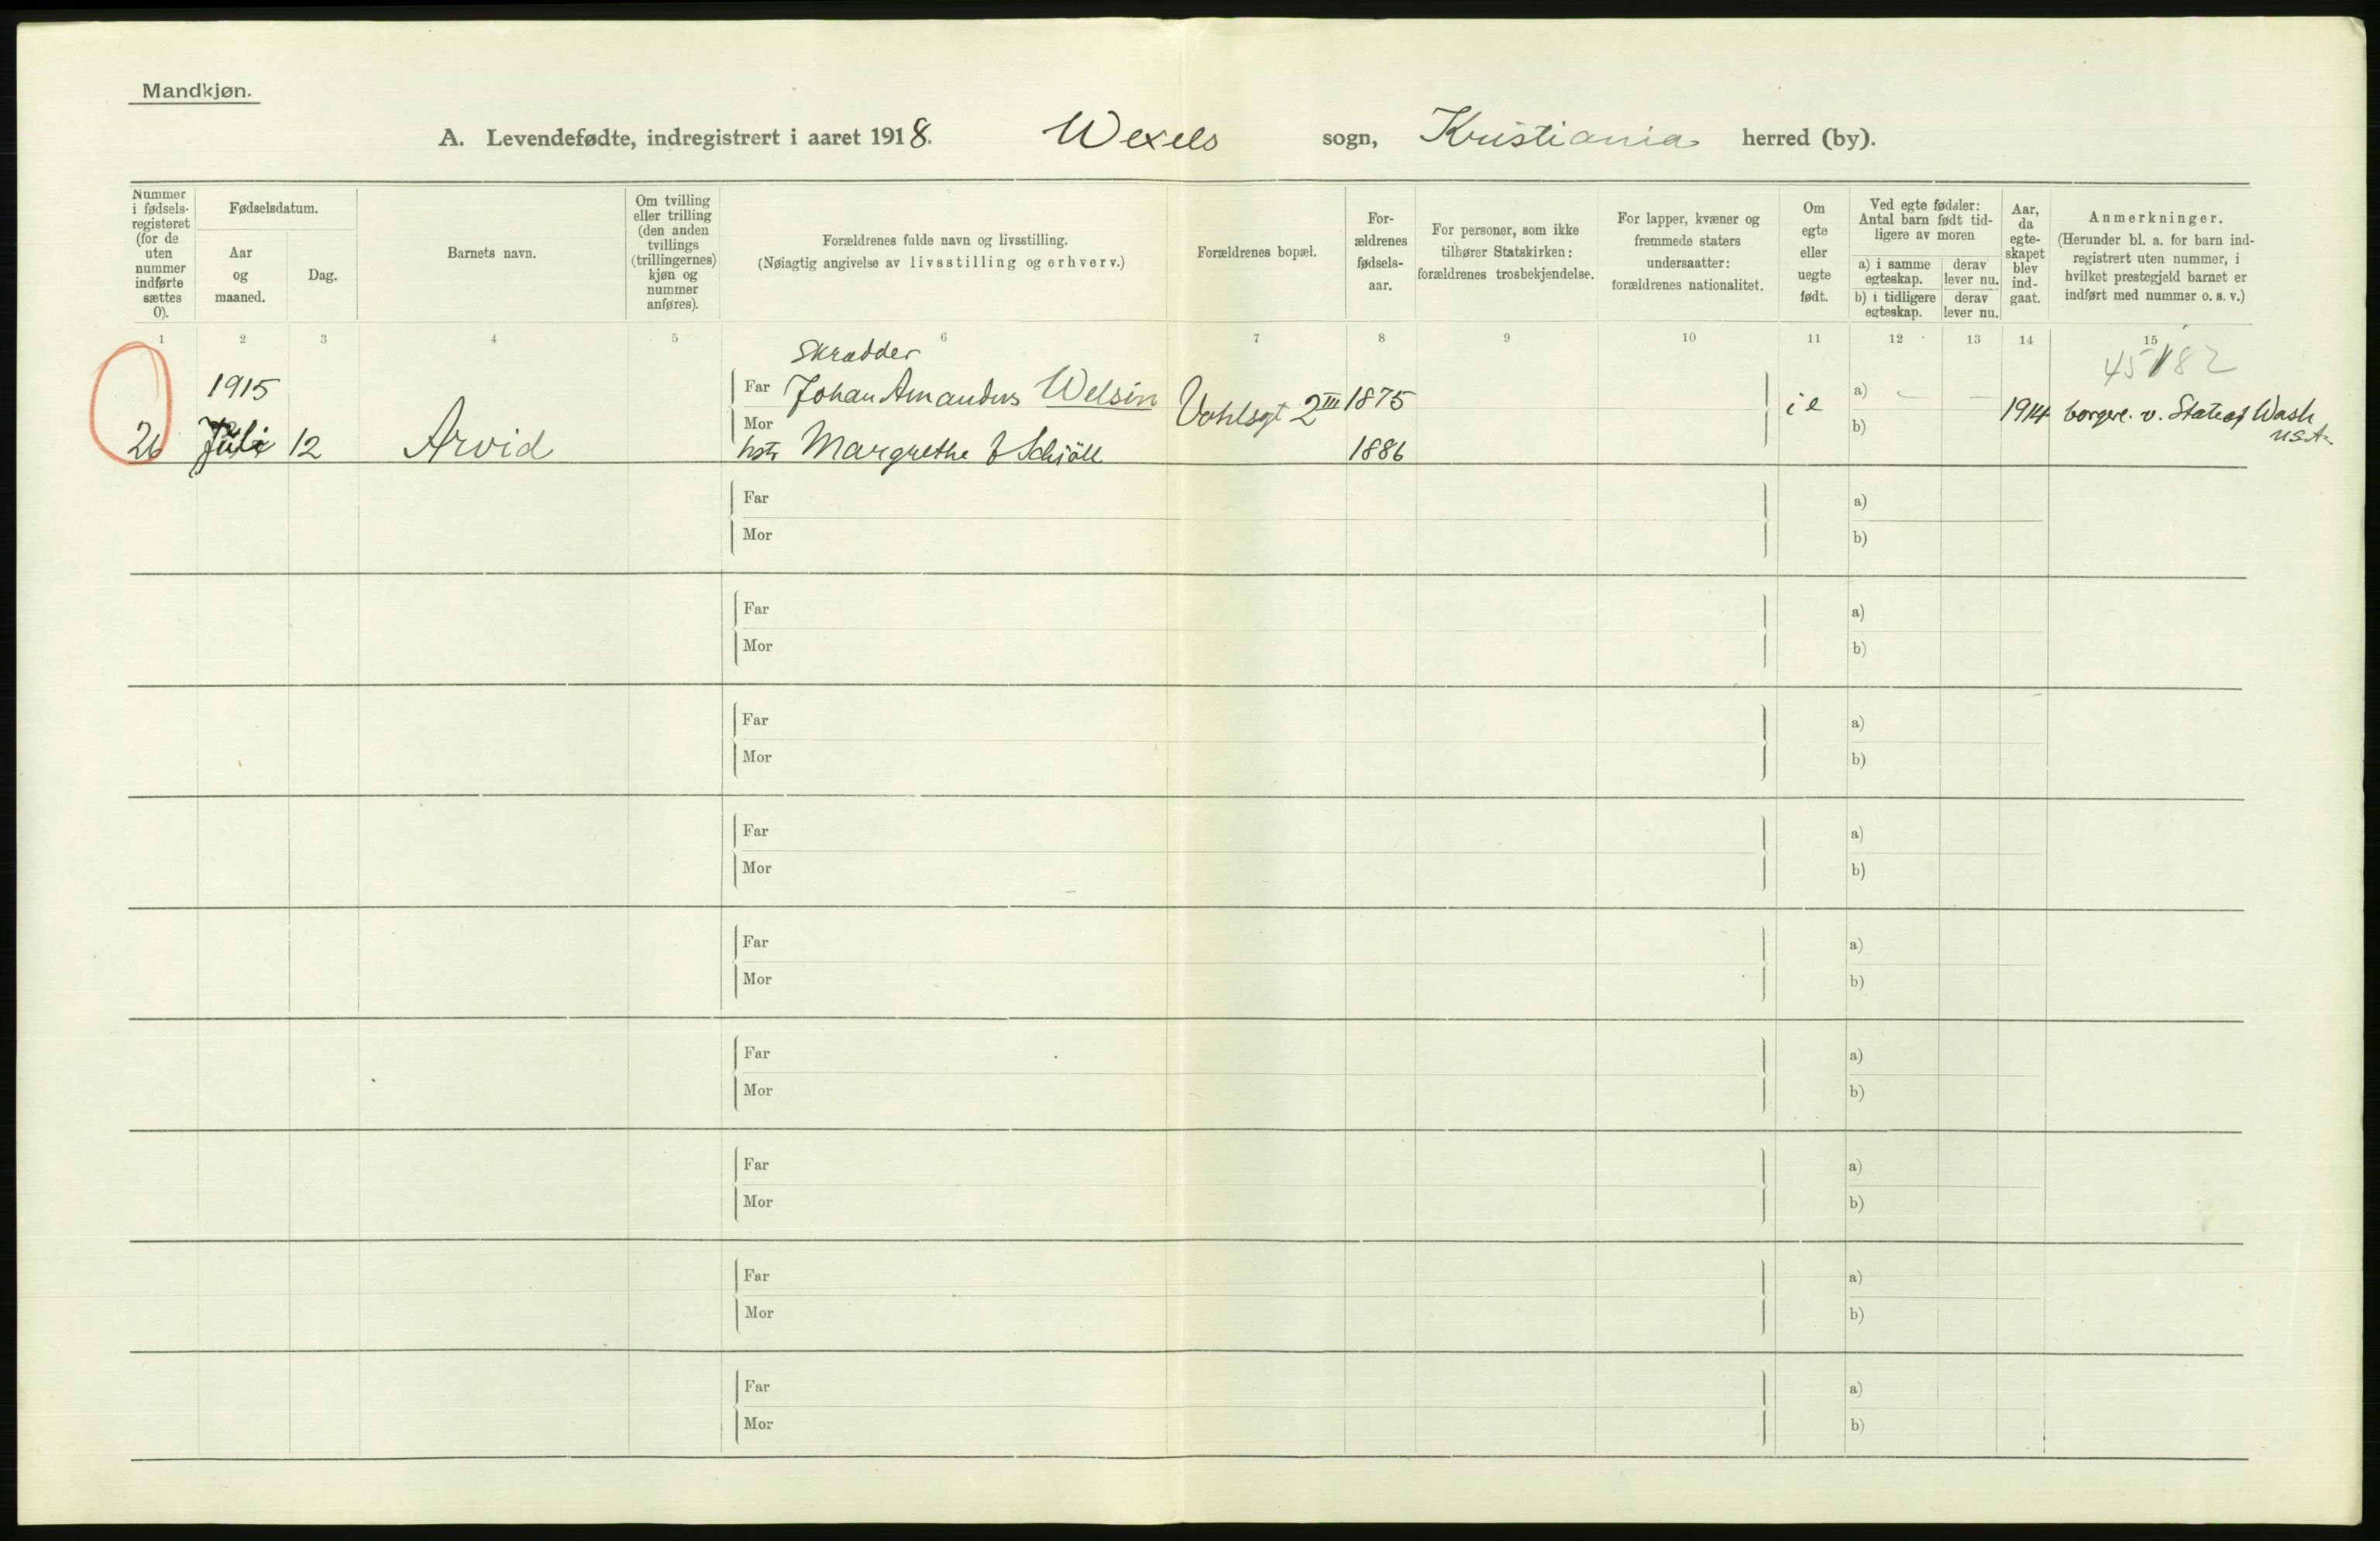 Mandkjøn.
A. Levendefødte, indregistrert i aaret 1918. Wexels sogn, Kristiania herred (by).
Nummer i fødselsregisteret (for de uten nummer indførte sættes 0).
Fødselsdatum.
Aar og maaned.
Dag.
Barnets navn.
Om tvilling eller trilling (den anden tvillings (trillingernes) kjøn og nummer anføres).
Forældrenes fulde navn og livsstilling.
(Nøiagtig angivelse av livsstilling og erhverv.)
Forældrenes bopæl.
Forældrenes fødselsaar.
For personer, som ikke tilhører Statskirken: forældrenes trosbekjendelse.
For lapper, kvæner og fremmede staters undersaatter: forældrenes nationalitet.
Om egte eller uegte født.
Ved egte fødsler: Antal barn født tidligere av moren
a) i samme egteskap.
derav lever nu.
b) i tidligere egteskap.
derav lever nu.
Aar, da egteskapet blev indgaat.
Anmerkninger.
(Herunder bl. a. for barn indregistrert uten nummer, i hvilket prestegjeld barnet er indført med nummer o. s. v.)
1 2 3 4 5 6 7 8 9 10 11 12 13 14 15
Skrædder 45182
1915 Far Johan Amandus Welsin Vahlsgt 2 III 1875 i e a) — — 1914 borgere. v. State of Wash
U.S.A.
26 Juli 12 Arvid Mor hstr Margrethe f Schjöll 1886 b)
Far a)
Mor b)
Far a)
Mor b)
Far a)
Mor b)
Far a)
Mor b)
Far a)
Mor b)
Far a)
Mor b)
Far a)
Mor b)
Far a)
Mor b)
Far a)
Mor b)